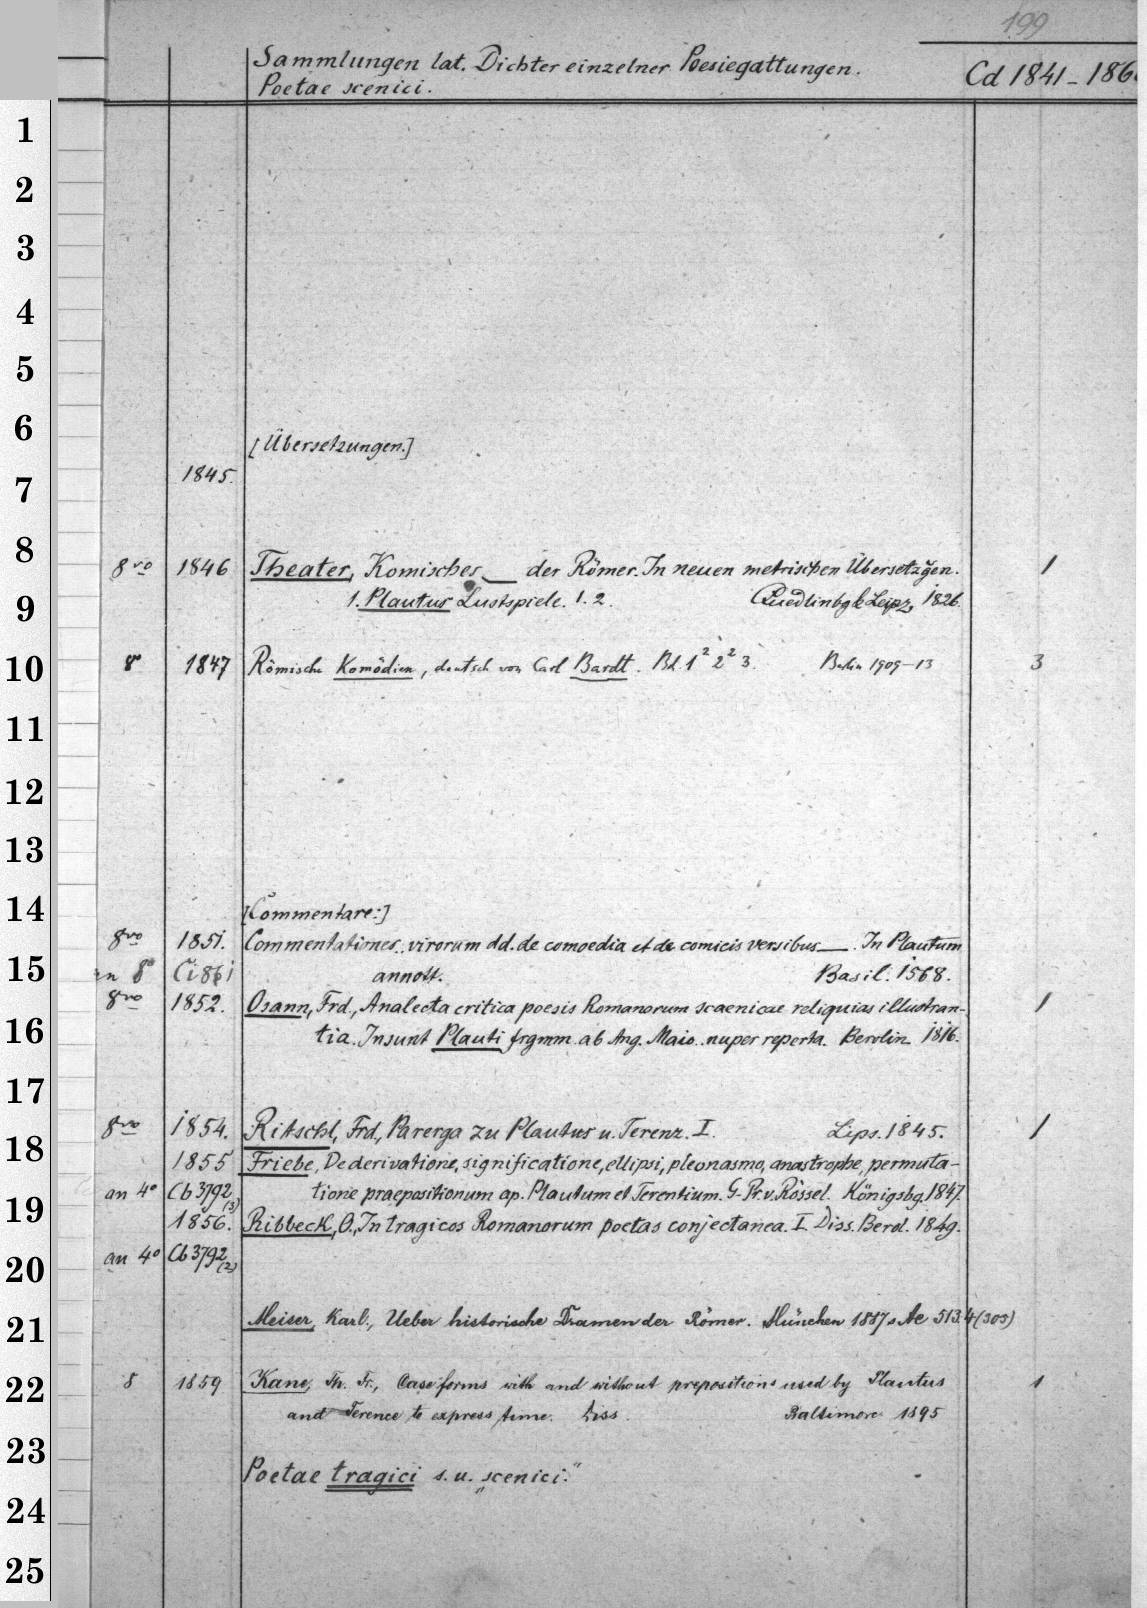 199
Sammlungen lat. Dichter einzelner Poesiegattungen. Cd 1841-186
Poetae scenici.
1
2
3
4
5
6
[Übersetzungen.]
1845.
7
8
8vo 1846 Theater, Komisches __ der Römer. In neuen metrischen Übersetzgen. 1
9
1. Plautus Lustspiele. 1. 2. Quedlinbg & Leipz. 1826.
10
8° 1847 Römische Komödien, deutsch von Carl Bardt. Bd. 1² 2² 3. Berlin 1909-13 3
11
12
13
14
[Commentare:]
8vo 1851. Commentationes virorum dd. de comoedia et de comicis versibus __. In Plautum
15
an 8° Ci 861 annott. Basil. 1568.
8vo 1852. Osann, Frd., Analecta critica poesis Romanorum scaenicae reliquias illustran- 1
16
tia. Insunt Plauti frgmm. ab Ang. Maio nuper reperta. Berolin. 1816.
17
8vo 1854. Ritschl, Frd., Parerga zu Plautus u. Terenz. I. Lips. 1845. 1
18
1855 Friebe, De derivatione, significatione, ellipsi, pleonasmo, anastrophe, permuta-
an 4° Cb 3792 (3) tione praepositionum ap. Plautum et Terentium. G-Pr. v. Rössel. Königsbg. 1847.
19
1856. Ribbeck, O., In tragicos Romanorum poetas conjectanea. I. Diss. Berol. 1849.
an 4° Cb 3792 (2)
20
21
Meiser, Karl, Ueber historische Dramen der Römer. München 1887. Ae 513.4 (305)
22
8 1859 Kane, Th. Fr., Case forms with and without prepositions used by Plautus 1
and Terence to express time. Diss. Baltimore 1895
23
Poetae tragici s. u. „scenici."
24
25